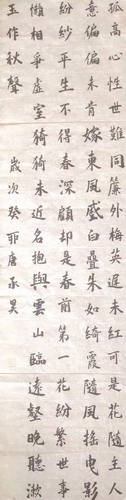 孤高心性世難同簾外梅英遲未紅可是花隨主人
意偏偏未肯嫁東風盛白疊朱如綺霞隨風搖電影
紛紗平生不得春深顧却是春前第一花紛繁世事
懶相爭虛室猗猗未近名抱與雲山臨遠壑晚聽漱
玉作秋聲 歲次癸卯唐永昊